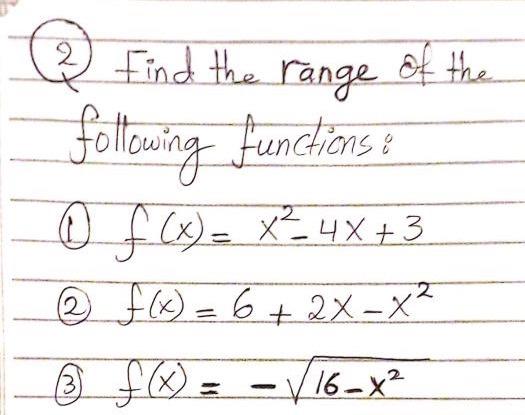 Q2 Find the range of the
following functions:
① f(x) = x² - 4x + 3
② f(x) = 6 + 2x - x²
③ f(x) = - √16-x²